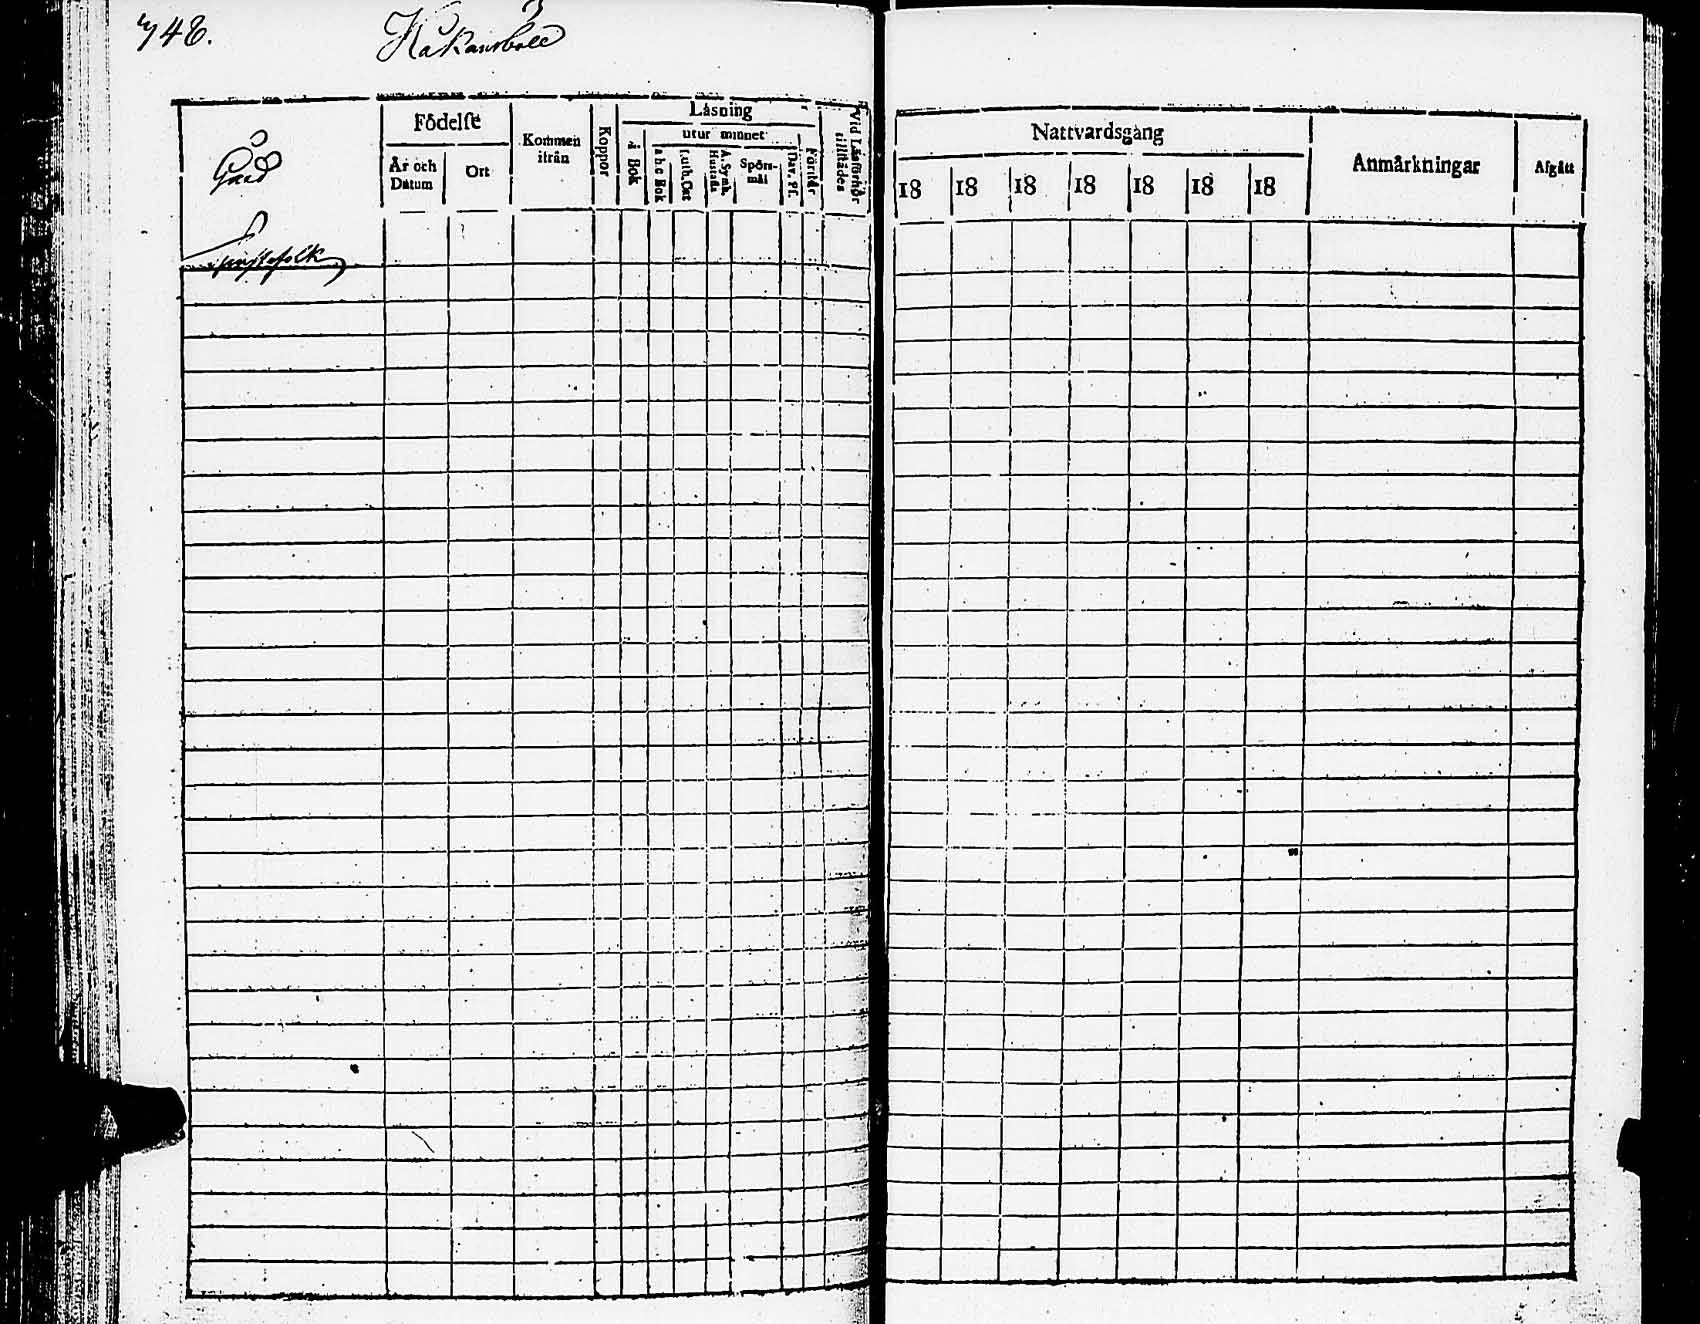 748. Håkansböle
Gård
Tjenstefolk
Födelse
År och Datum
Ort
Kommen ifrån
Koppor
Läsning
i Bok
utur minnet
a b c Bok
Luth. Cat
A. Symb. Hustafla
Spörsmål
Dav. Pf.
Förstår
Vid Läsförhör tillstädes
Nattvardsgång
18 18 18 18 18 18 18
Anmärkningar
Afgått